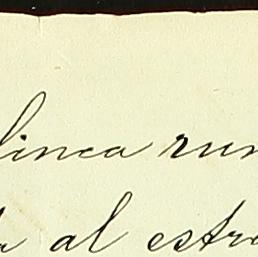 linea run
al estre